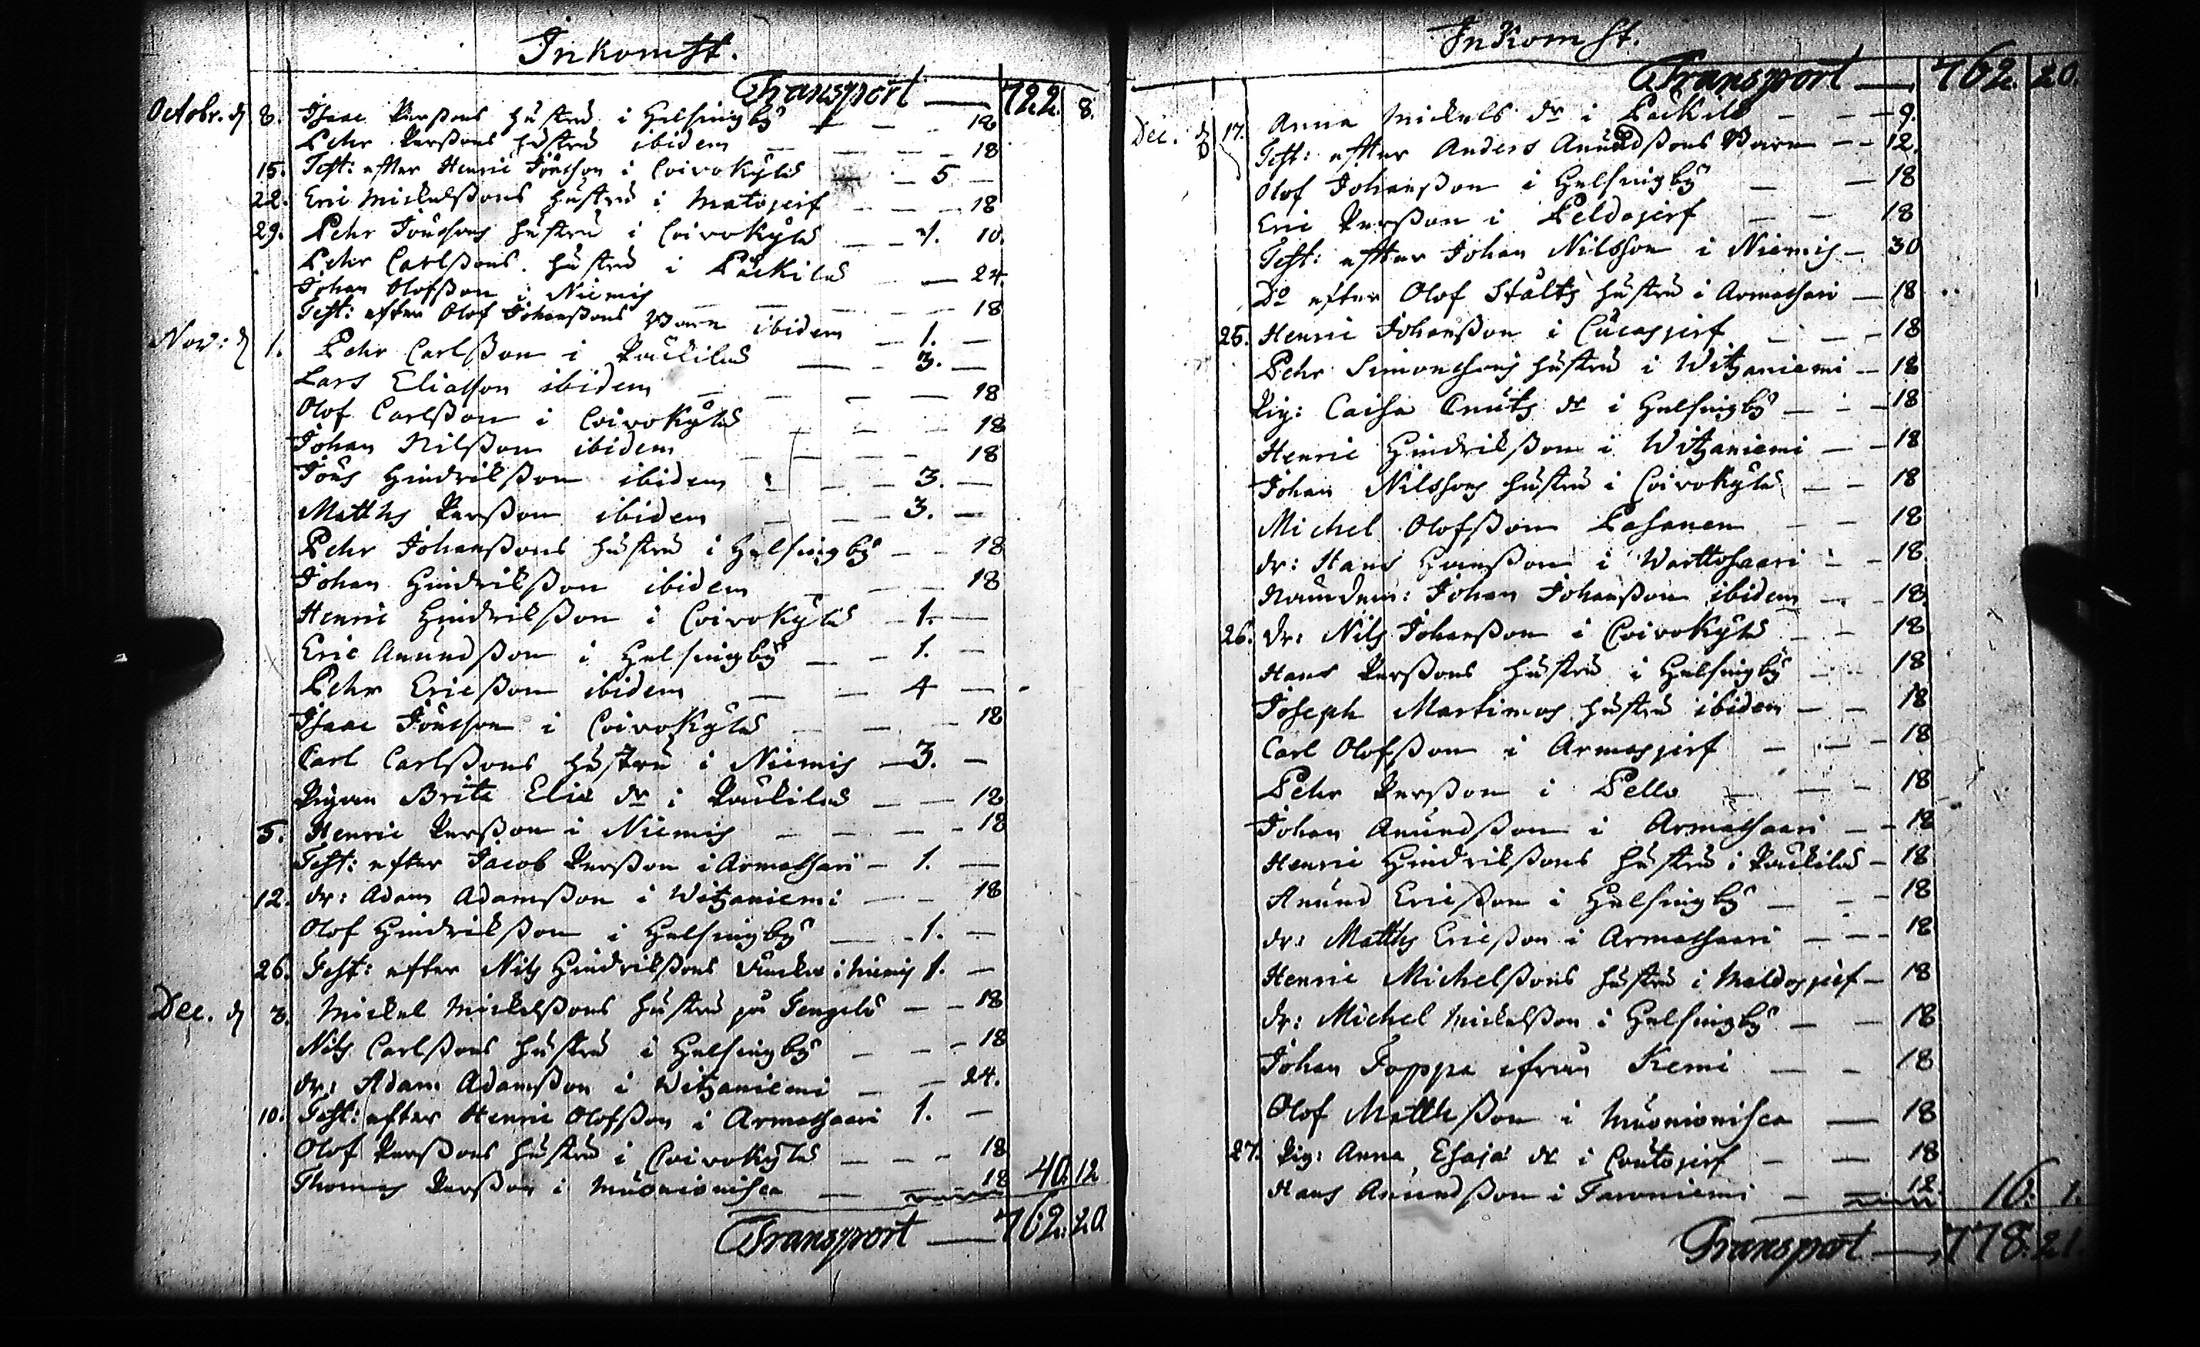 Inkomst.
Transport — 722. 8.
Octobr. d 8. Isaac Perßons hustru i Helsingby — 18
Pehr Perßons hustru ibidem — 18
15. Test: efter Henric Jönsson i Coivokylä — 5 —
22. Eric Mickelßons hustru i Matojerf — 18
29. Pehr Jönsons hustru i Coivokylä — 10.
Pehr Carlßons hustru i Päckilä — 24
Johan Olofßon i Niemis
Test: efter Olof Johanßons Barn ibidem — 1. —
Nov: d 1. Pehr Carlßon i Päckilä — 3. —
Lars Eliasson ibidem — 18
Olof Carlßon i Coivokylä — 18
Johan Nilßon ibidem — 18
Jöns Hindrikßon ibidem — 3. —
Matths Perßon ibidem — 3. —
Pehr Johanßons hustru i Helsingby — 18
Johan Hindrikßon ibidem — 18
Henric Hindrikßon i Coivokylä — 1. —
Eric Anundßon i Helsingby — 1. —
Pehr Ericßon ibidem — 4 —
Isaac Jönsson i Coivokylä — 18
Carl Carlßons hustru i Niemis — 3. —
Pigan Brita Eliæ dr i Päckilä — 12
5. Henric Perßon i Niemis — 18
Test: efter Jacob Perßon i Armassari — 1. —
12. dr: Adam Adamßon i Witzaniemi — 18
Olof Hindrikßon i Helsingby — 1. —
26. Test: efter Nils Hindrikßons Enka i Niemis 1. —
Dec. d 3. Mickel Mickelßons hustru på Tengelö — 18
Nils Carlßons hustru i Helsingby — 18
dr: Adam Adamßon i Witzaniemi — 24.
10. Test: efter Henric Olofßon i Armassaari 1. —
Olof Perßons hustru i Coivokylä — 18
Thomas Perßon i Muonionisca — 18 40. 12
Transport — 762. 20
Inkomst.
Transport — 762. 20.
Dec. d 17. Anna Mickels dr i Päckilä — 9.
Test: efter Anders Anundßons Barn — 12.
Olof Johanßon i Helsingby — 18
Eric Perßon i Peldojerf — 18
Test: efter Johan Nilsson i Niemis — 30
Do efter Olof Stålts hustru i Armassari — 18
25. Henric Johanßon i Cucasjerf — 18
Pehr Simonsons hustru i Witzaniemi — 18
Pig: Caisa Cnuts dr i Helsingby — 18
Henric Hindrikßon i Witzaniemi — 18
Johan Nilssons hustru i Coivokylä — 18
Michel Olofßon Pasanen — 18
dr: Hans Hansßon i Warttosaari — 18
Johan Johanßon ibidem — 18.
26. dr: Nils Johanßon i Coivokylä — 18
Hans Perßons hustru i Helsingby — 18
Joseph Martimos hustru ibidem — 18
Carl Olofßon i Armasjerf — 18
Pehr Perßon i Pello — 18
Johan Anundßon i Armassaari — 18
Henric Hindrikßons hustru i Päckilä — 18
Anund Ericßon i Helsingby — 18
dr: Matths Ericßon i Armassaari — 18
Henric Michelßons hustru i — 18
dr: Michel Mickelßon i Helsingby — 18
Johan Foppa ifrån Kemi — 18
Olof Matthßon i Muonionisca — 18
27. Pig: Anna Esajæ dr i — 18
Hans Anundßon i — 12. 16. 1.
Transport — 778. 21.